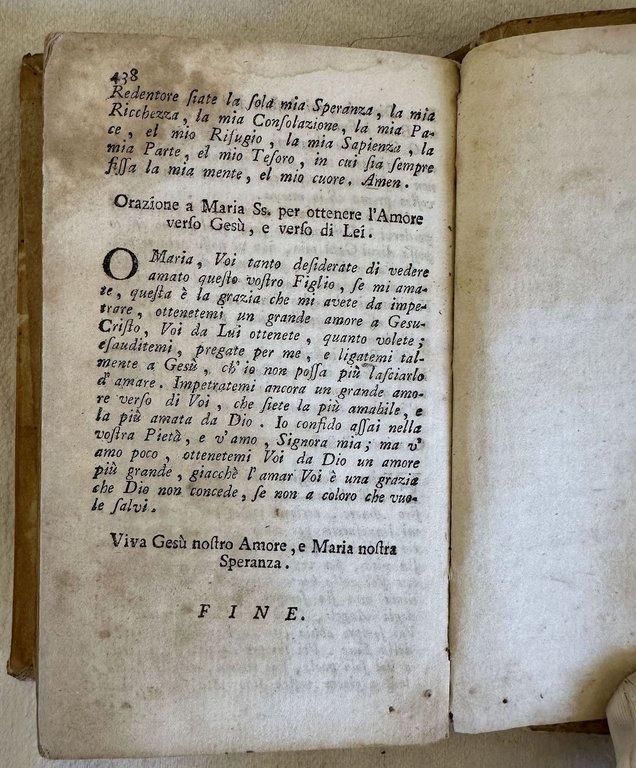 438
Redentore ſiate la ſola mia Speranza, la mia
Ricchezza, la mia Conſolazione, la mia Pa-
ce, el mio Rifugio, la mia Sapienza, la
mia Parte, el mio Teſoro, in cui ſia ſempre
fiſſa la mia mente, el mio cuore. Amen.
Orazione a Maria Ss. per ottenere l'Amore
verſo Gesù, e verſo di Lei.
O Maria, Voi tanto deſiderate di vedere
amato queſto voſtro Figlio, ſe mi ama-
te, queſta è la grazia che mi avete da impe-
trare, ottenetemi un grande amore a Gesu-
Criſto, Voi da Lui ottenete, quanto volete;
eſauditemi, pregate per me, e ligatemi tal-
mente a Gesù, ch'io non poſſa più laſciarlo
d'amare. Impetratemi ancora un grande amo-
re verſo di Voi, che ſiete la più amabile, e
la più amata da Dio. Io confido aſſai nella
voſtra Pietà, e v'amo, Signora mia; ma v'
amo poco, ottenetemi Voi da Dio un amore
più grande, giacchè l'amar Voi è una grazia
che Dio non concede, ſe non a coloro che vuo-
le ſalvi.
Viva Gesù noſtro Amore, e Maria noſtra
Speranza.
FINE.